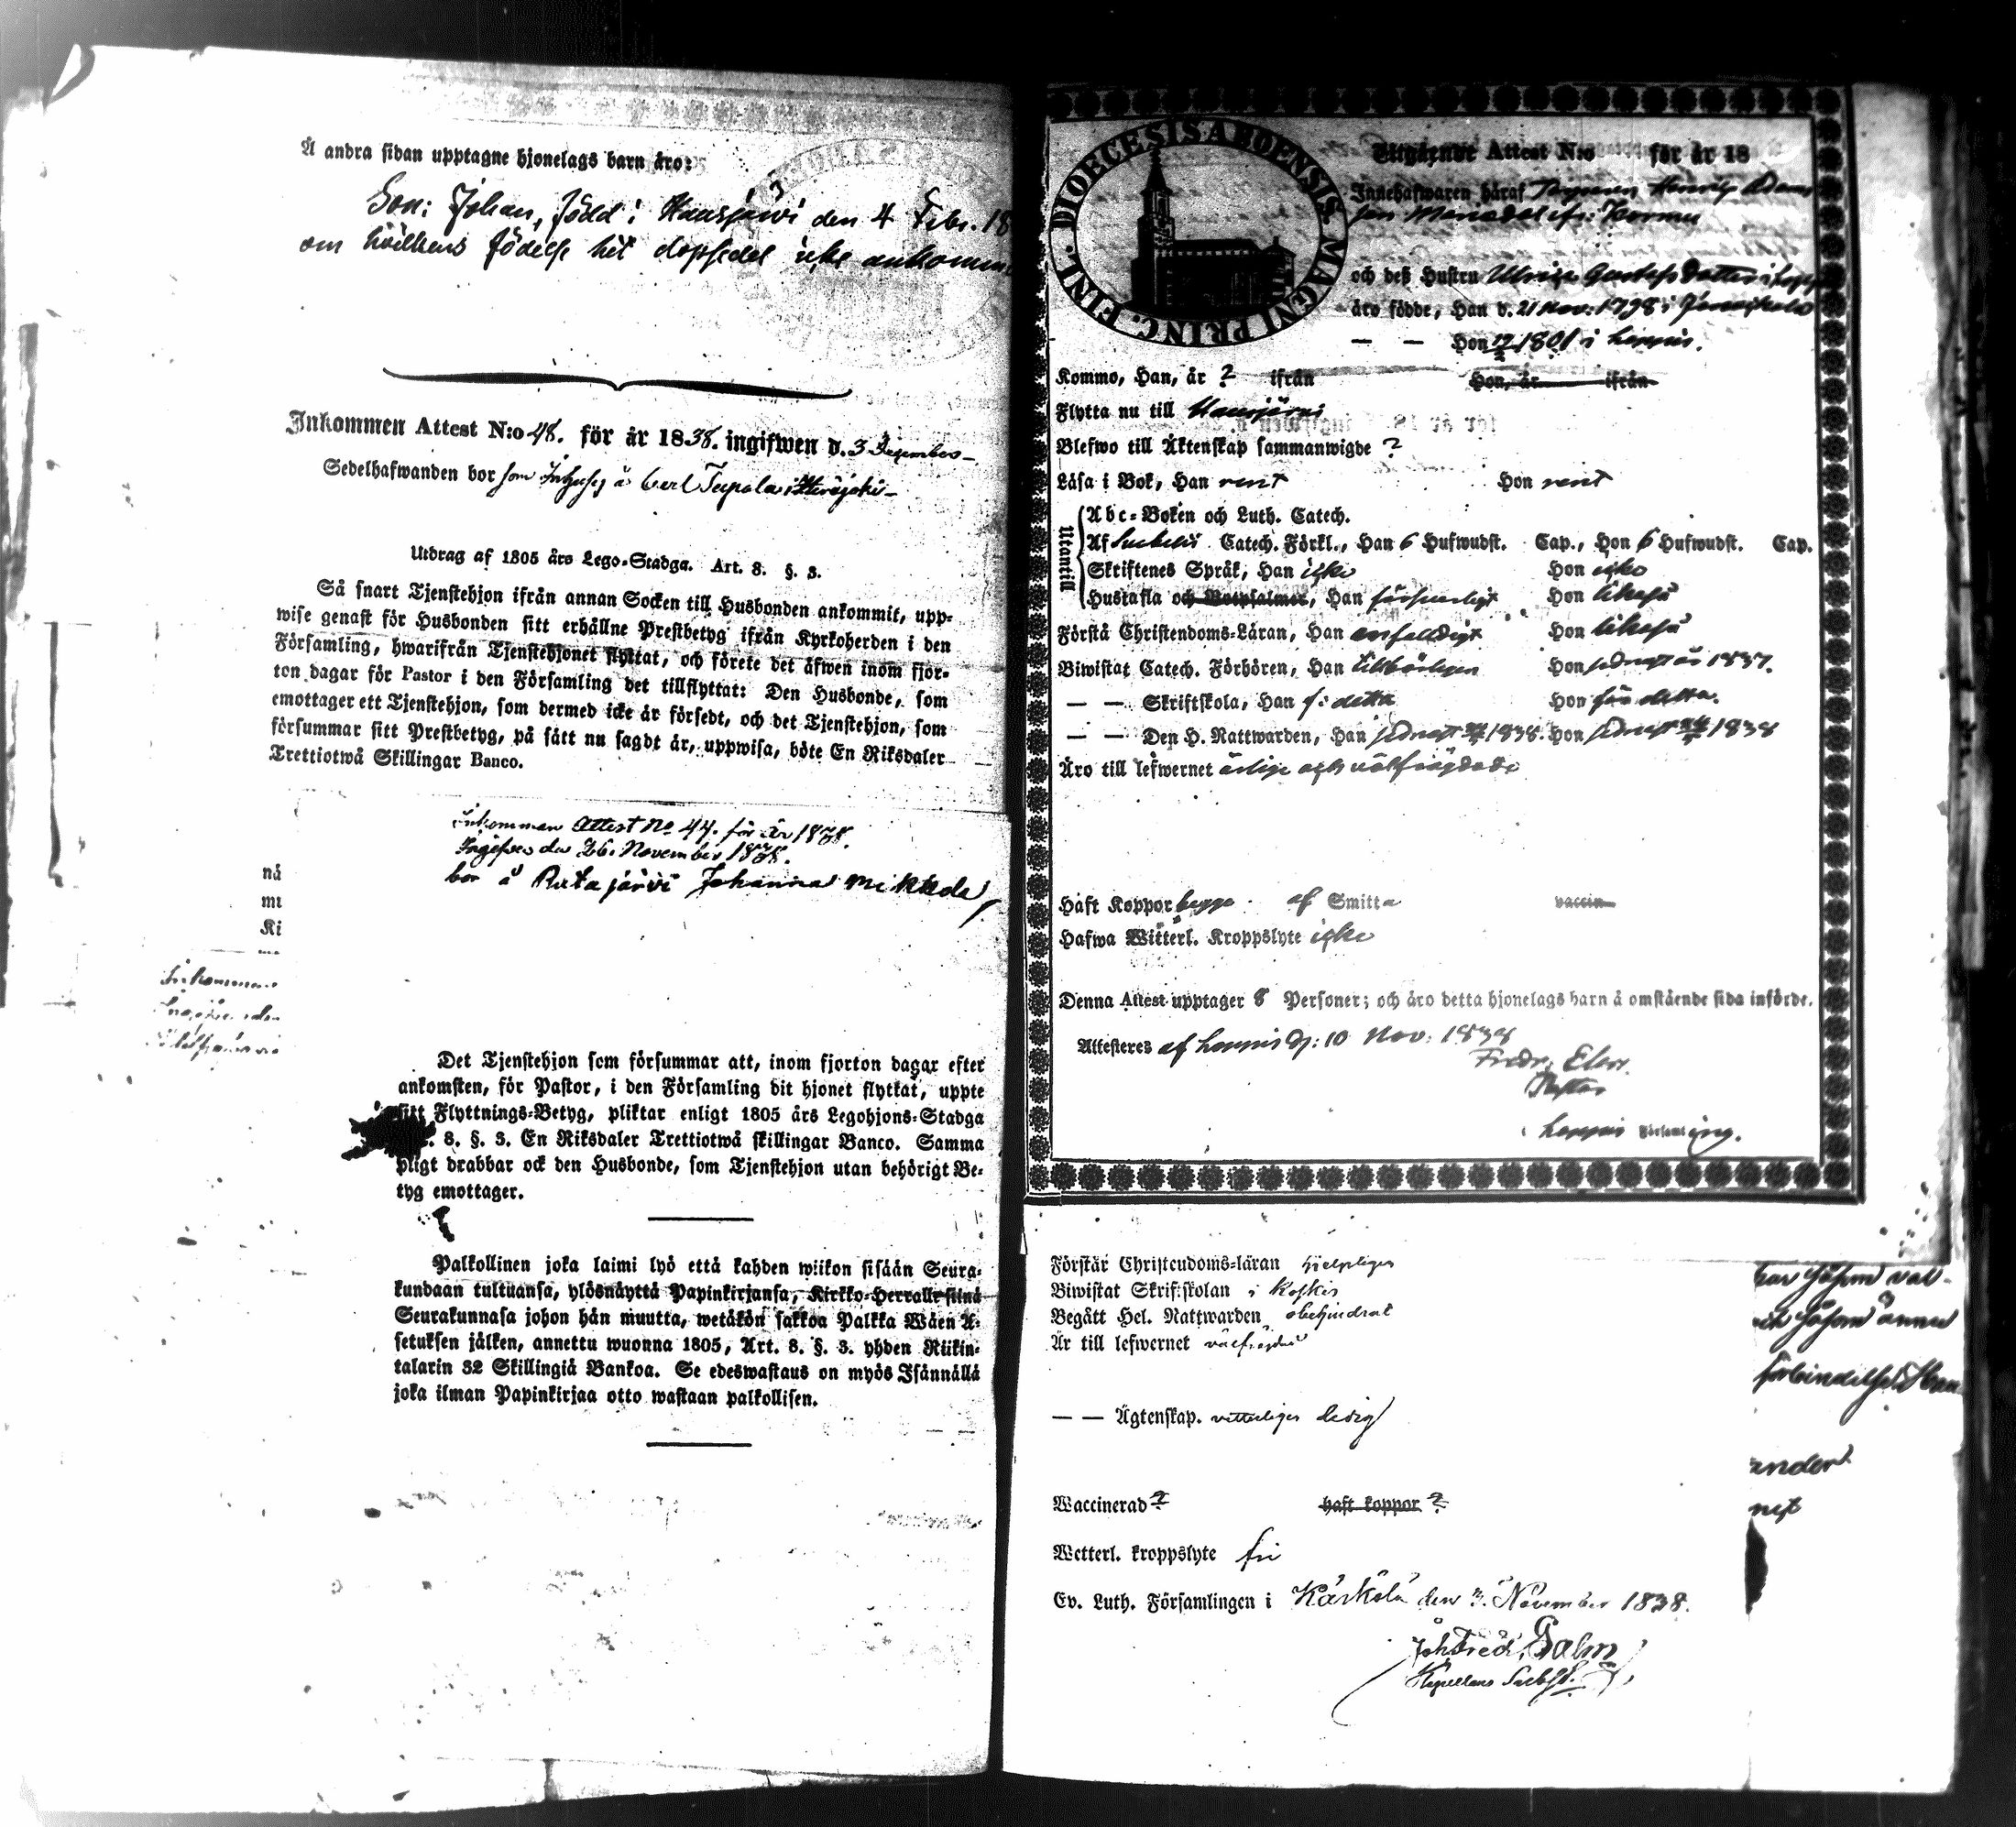 Å andra sidan upptagne hjonelags barn äro:
Son: Johan, född i Hausjärvi den 4 Febr. 18
om hvilkens födelse hit dopsedel icke ankommi
Inkommen Attest N:o 48. för år 1838. ingifwen d. 3 December
Sedelhafwanden bor som Inhyses å
Utdrag af 1805 års Lego-Stadga. Art. 8. §. 3.
Så snart Tjenstehjon ifrån annan Socken till Husbonden ankommit, upp-
wise genast för Husbonden sitt erhållne Prestbetyg ifrån Kyrkoherden i den
Församling, hwarifrån Tjenstehjonet flyttat, och förete det äfwen inom fjor-
ton dagar för Pastor i den Församling det tillflyttat: Den Husbonde, som
emottager ett Tjenstehjon, som dermed icke är försedt, och det Tjenstehjon, som
försummar sitt Prestbetyg, på sätt nu sagdt är, uppwisa, böte En Riksdaler
Trettiotwå Skillingar Banco.
Inkommen Attest No 44. för år 1838.
Ingifven den 26. November 1838.
bor å Rutajärvi Johanna
nå
mi
Ki
Inkommen
Det Tjenstehjon som försummar att, inom fjorton dagar efter
ankomsten, för Pastor, i den Församling dit hjonet flyttat, uppte
sitt Flyttnings-Betyg, pliktar enligt 1805 års Legohjons-Stadga
8. §. 3. En Riksdaler Trettiotwå skillingar Banco. Samma
pligt drabbar ock den Husbonde, som Tjenstehjon utan behörigt Be-
tyg emottager.
Palkollinen joka laimi lyö että kahden wiikon sisään Seura-
kundaan tultuansa, ylösnäyttä Papinkirjansa, Kirkko-Herralle siinä
Seurakunnasa johon hän muutta, wetäkön sakkoa Palkka Wäen A-
setuksen jälken, annettu wuonna 1805, Art. 8. §. 3. yhden Riikin-
talarin 32 Skillingiä Bankoa. Se edeswastaus on myös Isännällä
joka ilman Papinkirjaa otto wastaan palkollisen.
DIOECESIS ABOENSIS MAGNI PRINC. FINL.
Utgående Attest N:o för år 18
Innehafwaren häraf Henric Adams
son
och deß Hustru Ulrica Gustafs Dotter i
äro födde, Han d. 21 Nov. 1798 i
— — Hon 1801 i Loppis.
Kommo, Han, år ? ifrån Hon, år ifrån
Flytta nu till Hausjärvi
Blefwo till Äktenskap sammanwigde ?
Läsa i Bok, Han rent Hon rent
Utantill
Abc-Boken och Luth. Catech.
Af Catech. Förkl., Han 6 Hufwudst. Cap., Hon 6 Hufwudst. Cap.
Skriftenes Språk, Han icke Hon icke
Hustafla och Botpsalmer, Han försvarligt Hon likaså
Förstå Christendoms-Läran, Han enfaldigt Hon likaså
Biwistat Catech. Förhören, Han Hon sednast år 1837.
— — Skriftskola, Han f: detta Hon för detta.
— — Den H. Nattwarden, Han sednast 1838. Hon sednast 1838
Äro till lefwernet ärlige och välfrägdade
Haft Koppor begge af Smitta vaccin
Hafwa Witterl. Kroppslyte icke
Denna Attest upptager 8 Personer; och äro detta hjonelags barn å omstående sida införde.
Attesteres af Loppis d: 10 Nov. 1838
Fredr.
Pastor
i Loppis Församling.
Förstår Christendoms-läran hjelpligen
Biwistat Skrif:skolan i Koskis
Begått Hel. Nattwarden obehindrat
Är till lefwernet välfrägdad
— — Ägtenskap. vitterligen ledig
Waccinerad ? haft koppor ?
Wetterl. kroppslyte fri
Ev. Luth. Församlingen i Kärkölä den 3. November 1838.
Joh. Fred.
Capellans
har såsom väl-
såsom ännu
förbindelse